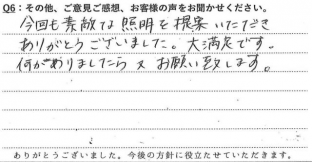 Q6：その他、ご意見ご感想、お客様の声をお聞かせください。
今回も素敵な照明を提案いただき
ありがとうございました。大満足です。
何がありましたら又お願い致します。
ありがとうございました。今後の方針に役立たせていただきます。